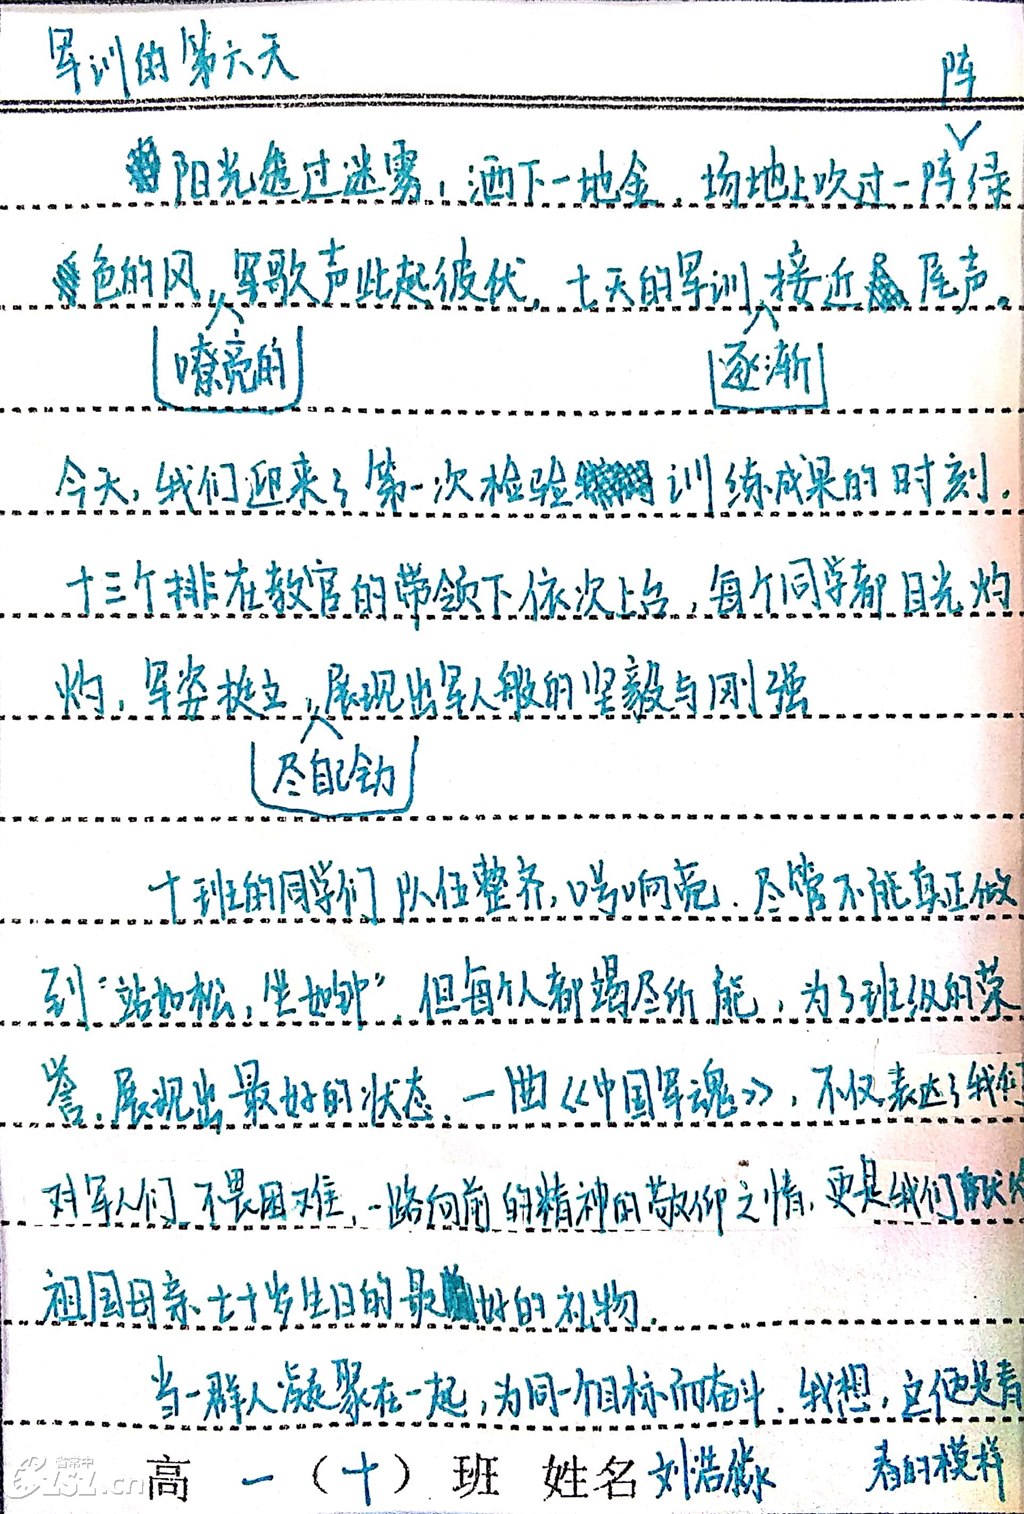 军训的第六天
阵
阳光透过迷雾，洒下一地金，场地上吹过一阵绿
色的风，军歌声此起彼伏，七天的军训接近尾声。
嘹亮的 逐渐
今天，我们迎来了第一次检验训练成果的时刻。
十三个排在教官的带领下依次上台，每个同学都目光灼
灼，军姿挺立，展现出军人般的坚毅与刚强
尽自己全力
十班的同学们队伍整齐，口号响亮，尽管不能真正做
到“站如松，坐如钟”，但每个人都竭尽所能，为了班级的荣
誉，展现出最好的状态，一曲《中国军魂》，不仅表达了我们
对军人们不畏困难，一路向前的精神的敬仰之情，更是我们
祖国母亲七十岁生日的最好的礼物。
当一群人凝聚在一起，为同一个目标而奋斗，我想，这便是青
春的模样
高一（十）班 姓名 刘浩
省常中